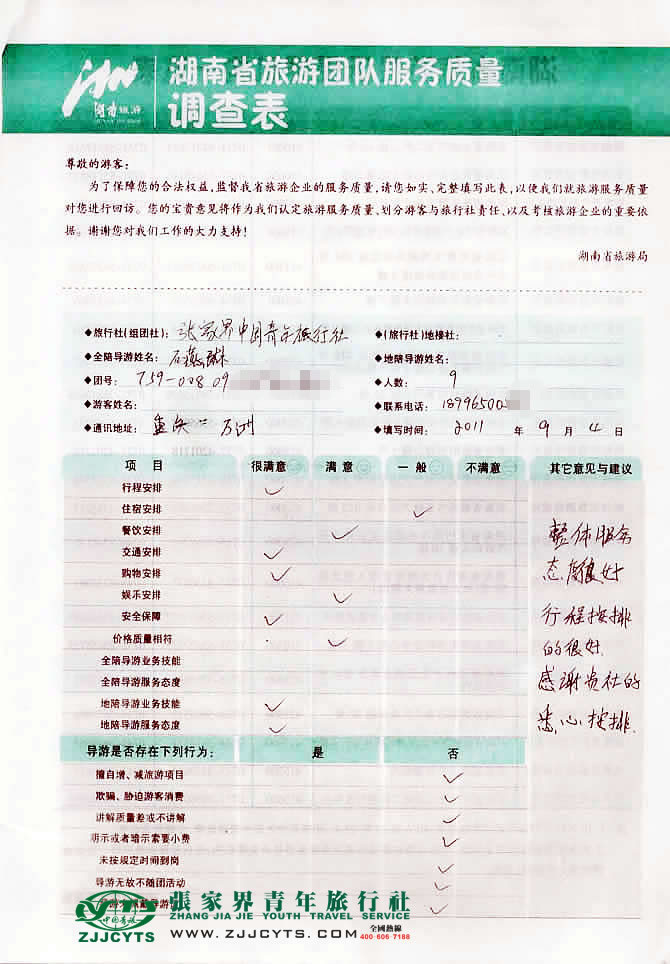 湖南旅游
湖南省旅游团队服务质量
调查表
尊敬的游客：
为了保障您的合法权益，监督我省旅游企业的服务质量，请您如实、完整填写此表，以便我们就旅游服务质量
对您进行回访。您的宝贵意见将作为我们认定旅游服务质量、划分游客与旅行社责任、以及考核旅游企业的重要依
据。谢谢您对我们工作的大力支持！
湖南省旅游局
◆旅行社(组团社)： 张家界中国青年旅行社 ◆(旅行社)地接社：
◆全陪导游姓名： 石 ◆地陪导游姓名：
◆团号： 759-008.09 ◆人数： 9
◆游客姓名： ◆联系电话： 18996500
◆通讯地址： 重庆 万州 ◆填写时间： 2011 年 9 月 4 日
项 目 很满意 满 意 一 般 不满意 其它意见与建议
行程安排
住宿安排
餐饮安排
交通安排
购物安排
娱乐安排
安全保障
价格质量相符
全陪导游业务技能
全陪导游服务态度
地陪导游业务技能
地陪导游服务态度
整体服务
态度很好
行程按排
的很好.
感谢贵社的
悉心按排.
导游是否存在下列行为： 是 否
擅自增、减旅游项目
欺骗、胁迫游客消费
讲解质量差或不讲解
明示或者暗示索要小费
未按规定时间到岗
导游无故不随团活动
中国青旅
ZJJCYTS
張家界青年旅行社
ZHANG JIA JIE YOUTH TRAVEL SERVICE
WWW.ZJJCYTS.COM 全國熱線
400-606-7188